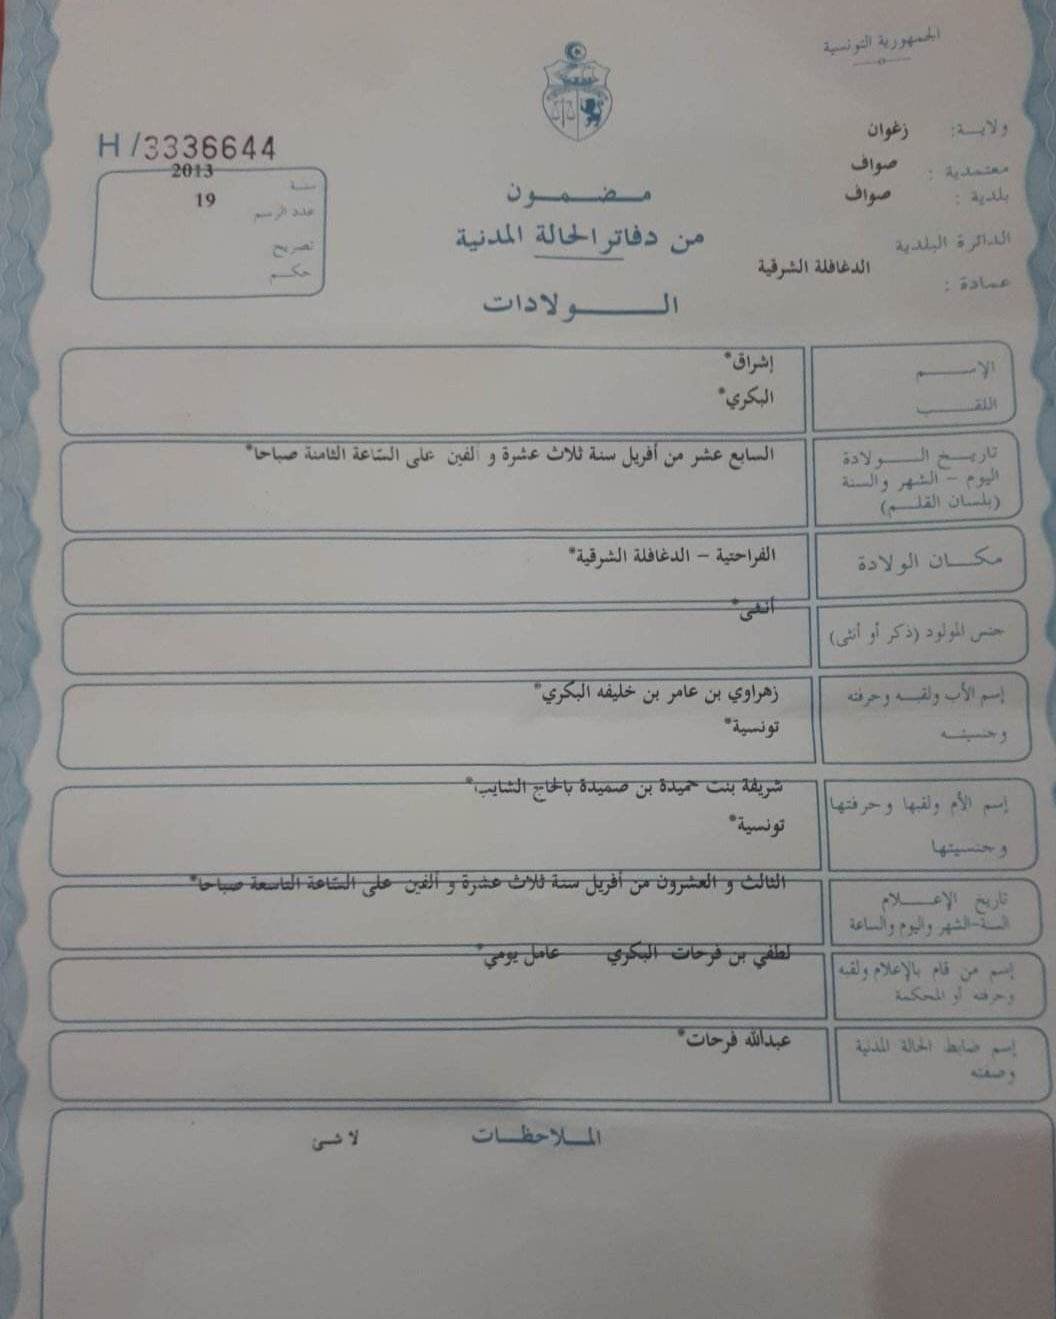 الجمهورية التونسية
ولاية: زغوان
معتمدية: صواف
بلدية: صواف
الدائرة البلدية
عمادة: الدغافلة الشرقية
H/3336644
سنة 2013
عدد الرسم 19
تصريح
حكم
مضمون
من دفاتر الحالة المدنية
الولادات
الإسم إشراق*
اللقب البكري*
تاريخ الولادة السابع عشر من أفريل سنة ثلاث عشرة و ألفين على الساعة الثامنة صباحا*
اليوم - الشهر والسنة
(بلسان القلم)
مكان الولادة الفراحتية - الدغافلة الشرقية*
جنس المولود (ذكر أو أنثى) أنثى*
إسم الأب ولقبه وحرفته زهراوي بن عامر بن خليفه البكري*
وجنسيته تونسية*
إسم الأم ولقبها وحرفتها شريفة بنت حميدة بن صميدة بالحاج الشايب*
وجنسيتها تونسية*
تاريخ الإعلام الثالث و العشرون من أفريل سنة ثلاث عشرة و ألفين على الساعة التاسعة صباحا*
السنة-الشهر واليوم والساعة
إسم من قام بالإعلام ولقبه لطفي بن فرحات البكري عامل يومي*
وحرفته أو المحكمة
إسم ضابط الحالة المدنية عبدالله فرحات*
وصفته
الملاحظات لا شئ